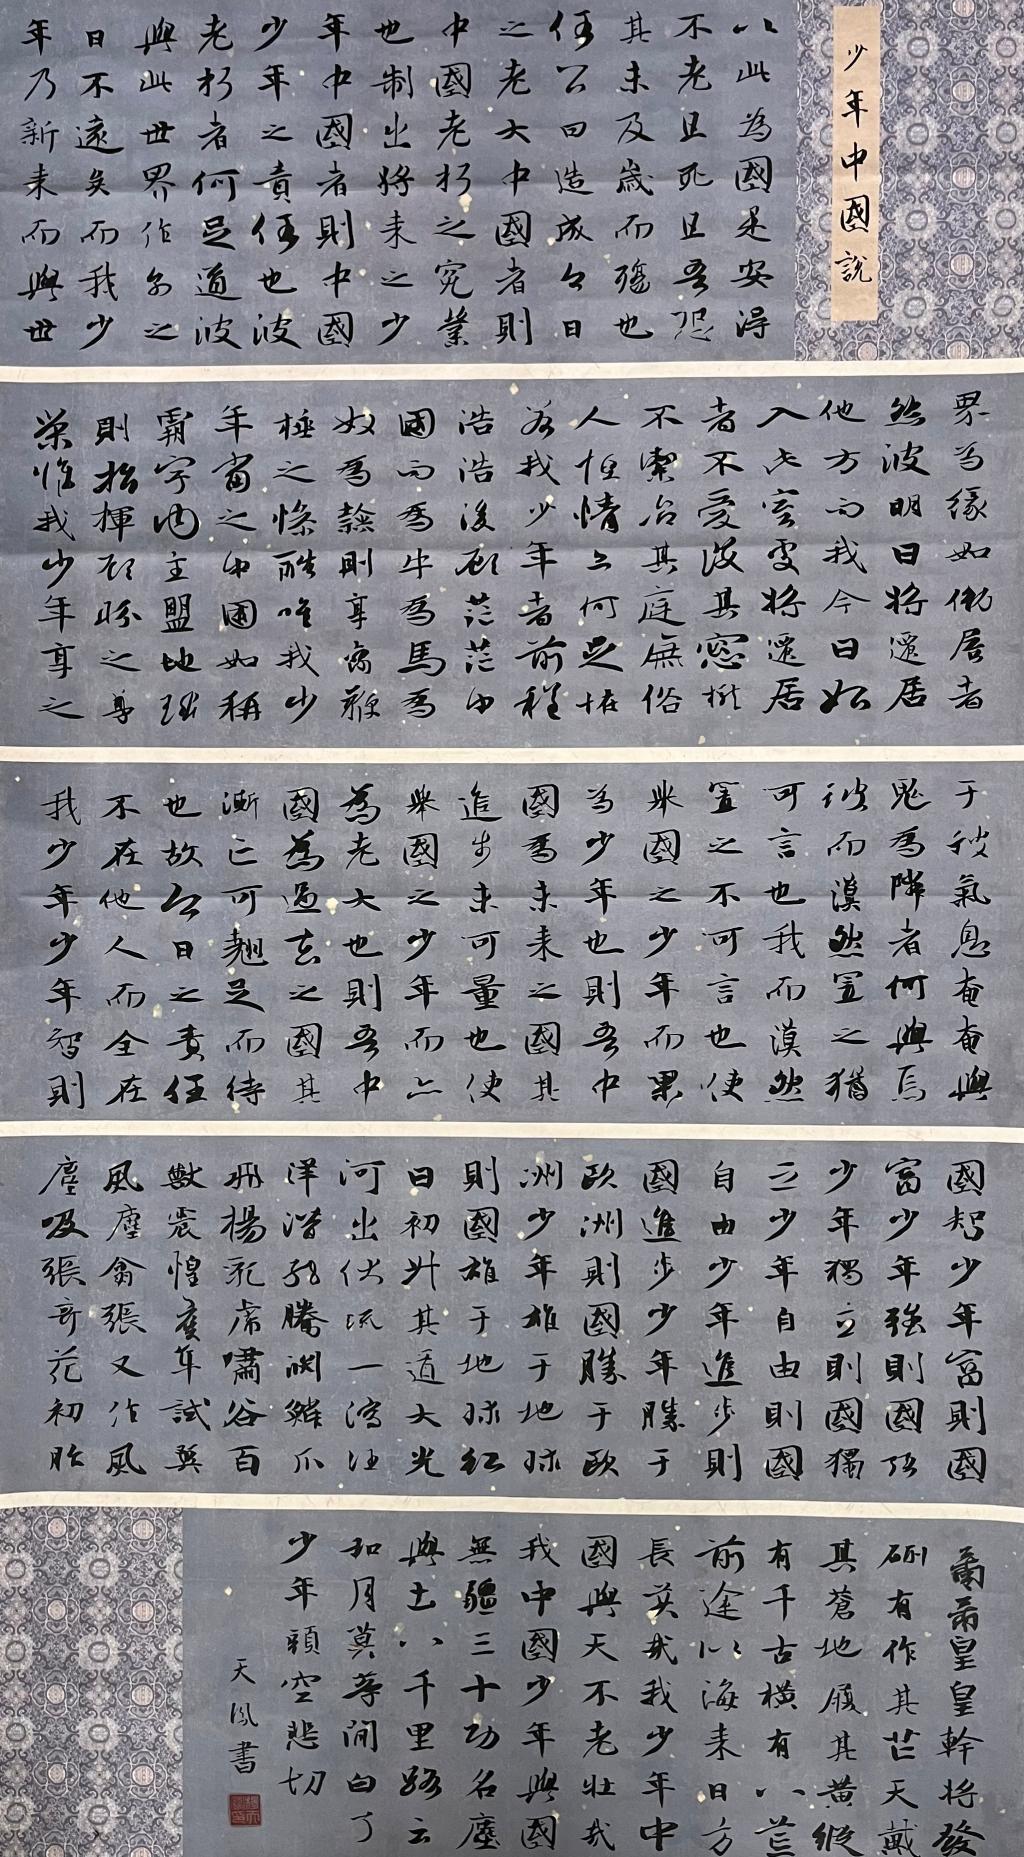 少年中國說
以此為國是安得
不老且死且吾恐
其未及歲而殤也
任公曰造成今日
之老大中國者則
中國老朽之冤業
也制出將来之少
年中國者則中國
少年之責任也彼
老朽者何足道彼
與此世界作别之
日不遠矣而我少
年乃新来而與世
界為緣如僦居者
然彼明日將遷居
他方而我今日始
入此室處將遷居
者不愛護其窗櫳
不潔治其庭廡俗
人恒情亦何足怪
若我少年者前程
浩浩後顧茫茫中
國而為牛為馬為
奴為隸則享臠鞭
棰之慘酷唯我少
年當之中國如稱
霸宇内主盟地球
則指揮顧盼之尊
榮惟我少年享之
于彼氣息奄奄與
鬼為隣者何與焉
彼而漠然置之猶
可言也我而漠然
置之不可言也使
舉國之少年而果
為少年也則吾中
國為未来之國其
進步未可量也使
舉國之少年而亦
為老大也則吾中
國為過去之國其
澌亡可翹足而待
也故今日之責任
不在他人而全在
我少年少年智則
國智少年富則國
富少年強則國強
少年獨立則國獨
立少年自由則國
自由少年進步則
國進步少年勝于
歐洲則國勝于歐
洲少年雄于地球
則國雄于地球紅
日初升其道大光
河出伏流一瀉汪
洋潛龍騰淵鱗爪
飛揚乳虎嘯谷百
獸震惶鷹隼試翼
風塵翕張又作風
塵吸張奇花初胎
矞矞皇皇幹將發
硎有作其芒天戴
其蒼地履其黃縱
有千古橫有八荒
前途似海来日方
長美哉我少年中
國與天不老壯哉
我中國少年與國
無疆三十功名塵
與土八千里路云
和月莫等閒白了
少年頭空悲切
天鳳書